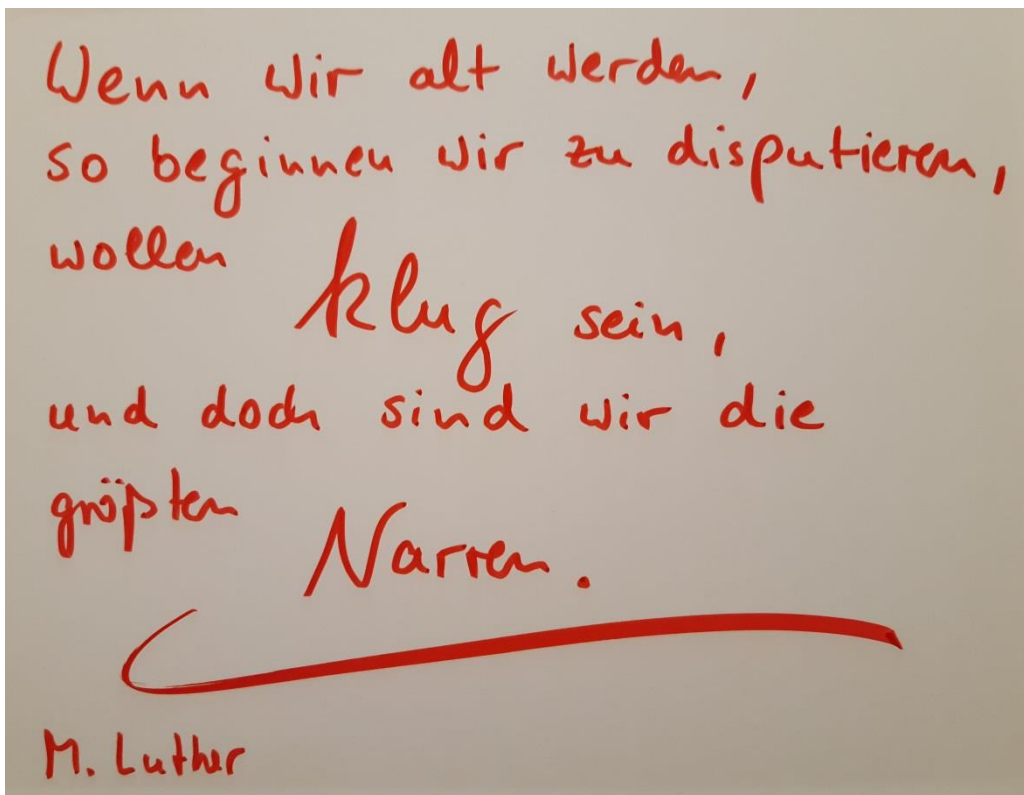 Wenn wir alt werden,
so beginnen wir zu disputieren,
wollen klug sein,
und doch sind wir die
größten Narren.
M. Luther